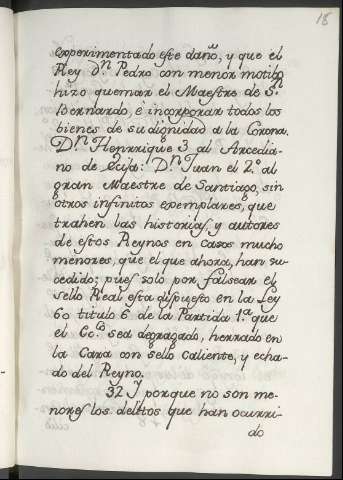 18
experimentado este daño, y que el
Rey Dn. Pedro con menor motibo
hizo quemar el Maestre de Sn.
Bernardo, è incorporar todos los
bienes de su dignidad a la Corona.
Dn. Henrrique 3 al Arcedia-
no de Ecija: Dn. Juan el 2º al
gran Maestre de Santiago, sin
otros infinitos exemplares, que
trahen las historias, y autores
de estos Reynos en casos mucho
menores, que el que ahora, han su-
cedido; pues solo por falsear el
sello Real esta dispuesto en la Ley
60 titulo 6 de la Partida 1ª que
el Ccº sea degragado, herrado en
la Cara con sello caliente, y echa-
do del Reyno.
32 Y porque no son me-
nores los delitos que han ocurri-
do